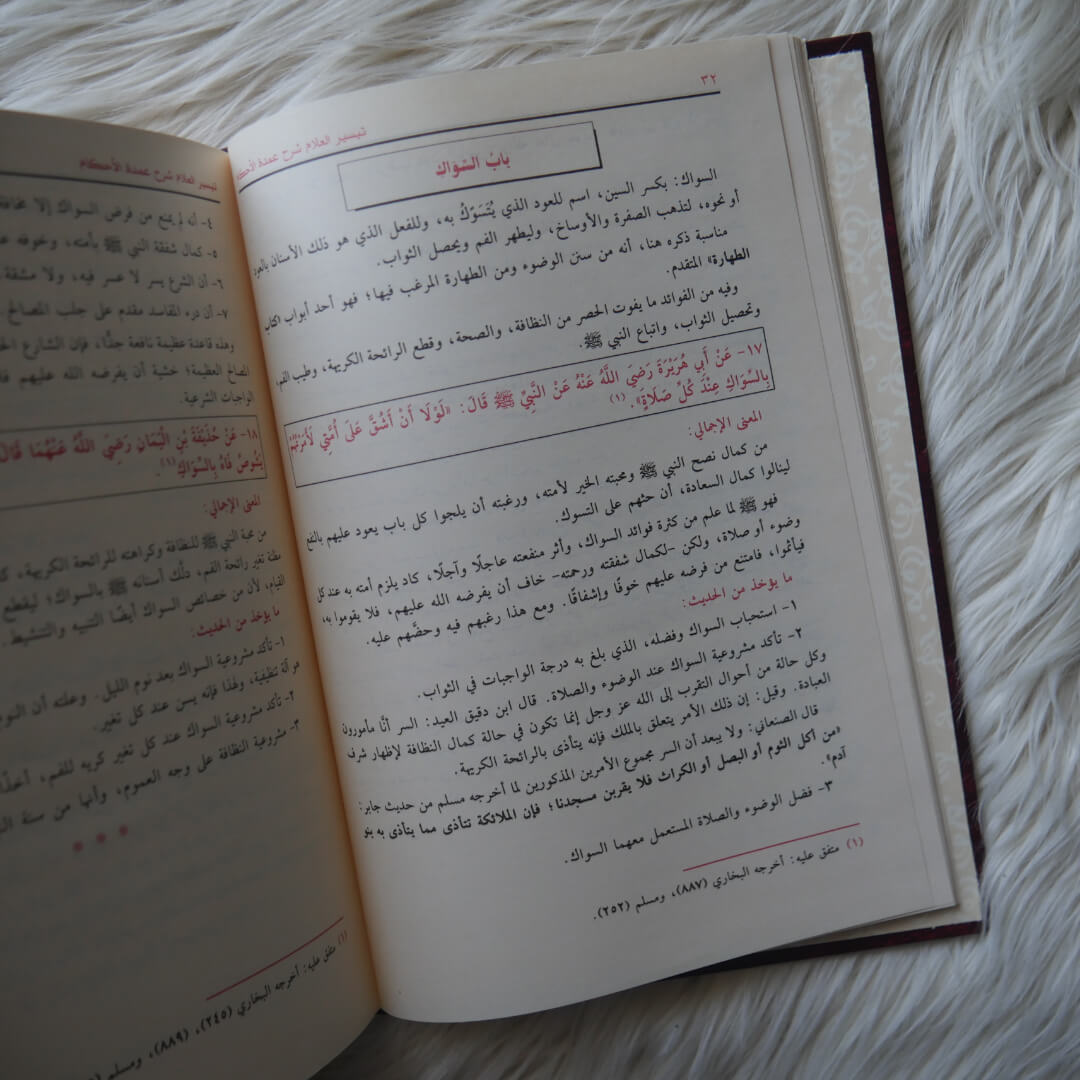 ٣٢
تيسير العلام شرح عمدة الأحكام
بابُ السِّوَاكِ
السواك: بكسر السين، اسم للعود الذي يُتَسَوَّكُ به، وللفعل الذي هو ذلك الأسنان بالعود
أو نحوه، لتذهب الصفرة والأوساخ، وليطهر الفم ويحصل الثواب.
مناسبة ذكره هنا، أنه من سنن الوضوء ومن الطهارة المرغب فيها؛ فهو أحد أبواب «كتاب
الطهارة» المتقدم.
وفيه من الفوائد ما يفوت الحصر من النظافة، والصحة، وقطع الرائحة الكريهة، وطيب الفم،
وتحصيل الثواب، واتباع النبي ﷺ.
١٧- عَنْ أَبِي هُرَيْرَةَ رَضِيَ اللَّهُ عَنْهُ عَنْ النَّبِيِّ ﷺ قَالَ: «لَوْلَا أَنْ أَشُقَّ عَلَى أُمَّتِي لَأَمَرْتُهُمْ
بِالسِّوَاكِ عِنْدَ كُلِّ صَلَاةٍ».(١)
المعنى الإجمالي:
من كمال نصح النبي ﷺ ومحبته الخير لأمته، ورغبته أن يلجوا كل باب يعود عليهم بالنفع
لينالوا كمال السعادة، أن حثهم على التسوك.
فهو ﷺ لما علم من كثرة فوائد السواك، وأثر منفعته عاجلًا وآجلًا، كاد يلزم أمته به عند كل
وضوء أو صلاة، ولكن -لكمال شفقته ورحمته- خاف أن يفرضه الله عليهم، فلا يقوموا به،
فيأثموا، فامتنع من فرضه عليهم خوفًا وإشفاقًا. ومع هذا رغبهم فيه وحضَّهم عليه.
ما يؤخذ من الحديث:
١- استحباب السواك وفضله، الذي بلغ به درجة الواجبات في الثواب.
٢- تأكد مشروعية السواك عند الوضوء والصلاة. قال ابن دقيق العيد: السر أنَّا مأمورون
وكل حالة من أحوال التقرب إلى الله عز وجل إنما تكون في حالة كمال النظافة لإظهار شرف
العبادة. وقيل: إن ذلك الأمر يتعلق بالملك فإنه يتأذى بالرائحة الكريهة.
قال الصنعاني: ولا يبعد أن السر مجموع الأمرين المذكورين لما أخرجه مسلم من حديث جابر:
«من أكل الثوم أو البصل أو الكراث فلا يقربن مسجدنا؛ فإن الملائكة تتأذى مما يتأذى به بنو
آدم».
٣- فضل الوضوء والصلاة المستعمل معهما السواك.
(١) متفق عليه: أخرجه البخاري (٨٨٧)، ومسلم (٢٥٢).
تيسير العلام شرح عمدة الأحكام
٤- أنه لم يمنع من فرض السواك إلا مخافة
٥- كمال شفقة النبي ﷺ بأمته، وخوفه
٦- أن الشرع يسر لا عسر فيه، ولا مشقة
٧- أن درء المفاسد مقدم على جلب المصالح
وهذه قاعدة عظيمة نافعة جدًّا، فإن الشارع
المصالح العظيمة؛ خشية أن يفرضه الله عليهم
الواجبات الشرعية.
١٨- عَنْ حُذَيْفَةَ بْنِ الْيَمَانِ رَضِيَ اللَّهُ عَنْهُمَا قَالَ
يَشُوصُ فَاهُ بِالسِّوَاكِ(١).
المعنى الإجمالي:
من محبة النبي ﷺ للنظافة وكراهته للرائحة الكريهة،
مظنة تغير رائحة الفم، دلَّك أسنانه ﷺ بالسواك؛ ليقطع
القيام، لأن من خصائص السواك أيضًا التنبيه والتنشيط.
ما يؤخذ من الحديث:
١- تأكد مشروعية السواك بعد نوم الليل. وعلته أن النوم
هو آلة تنظيفية، ولهذا فإنه يسن عند كل تغير.
٢- تأكد مشروعية السواك عند كل تغير كريه للفم،
٣- مشروعية النظافة على وجه العموم، وأنها من سنة
* * *
(١) متفق عليه: أخرجه البخاري (٢٤٥)، (٨٨٩)، ومسلم